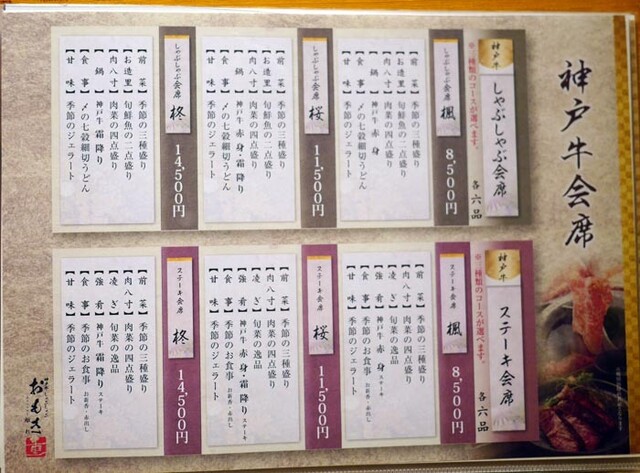 神戸牛会席
神戸牛
しゃぶしゃぶ会席
各六品
※三種類のコースが選べます。
しゃぶしゃぶ会席
楓
8,500円
【前菜】季節の三種盛り
【お造里】旬鮮魚の二点盛り
【肉八寸】肉菜の四点盛り
【鍋】神戸牛 赤身
【食事】〆の七穀細切うどん
【甘味】季節のジェラート
しゃぶしゃぶ会席
桜
11,500円
【前菜】季節の三種盛り
【お造里】旬鮮魚の二点盛り
【肉八寸】肉菜の四点盛り
【鍋】神戸牛 赤身・霜降り
【食事】〆の七穀細切うどん
【甘味】季節のジェラート
しゃぶしゃぶ会席
柊
14,500円
【前菜】季節の三種盛り
【お造里】旬鮮魚の二点盛り
【肉八寸】肉菜の四点盛り
【鍋】神戸牛 霜降り
【食事】〆の七穀細切うどん
【甘味】季節のジェラート
神戸牛
ステーキ会席
各六品
※三種類のコースが選べます。
ステーキ会席
楓
8,500円
【前菜】季節の三種盛り
【肉八寸】肉菜の四点盛り
【凌ぎ】旬菜の逸品
【強肴】神戸牛 赤身 ステーキ
【食事】季節のお食事 お新香・赤出し
【甘味】季節のジェラート
ステーキ会席
桜
11,500円
【前菜】季節の三種盛り
【肉八寸】肉菜の四点盛り
【凌ぎ】旬菜の逸品
【強肴】神戸牛 赤身・霜降り ステーキ
【食事】季節のお食事 お新香・赤出し
【甘味】季節のジェラート
ステーキ会席
柊
14,500円
【前菜】季節の三種盛り
【肉八寸】肉菜の四点盛り
【凌ぎ】旬菜の逸品
【強肴】神戸牛 霜降り ステーキ
【食事】季節のお食事 お新香・赤出し
【甘味】季節のジェラート